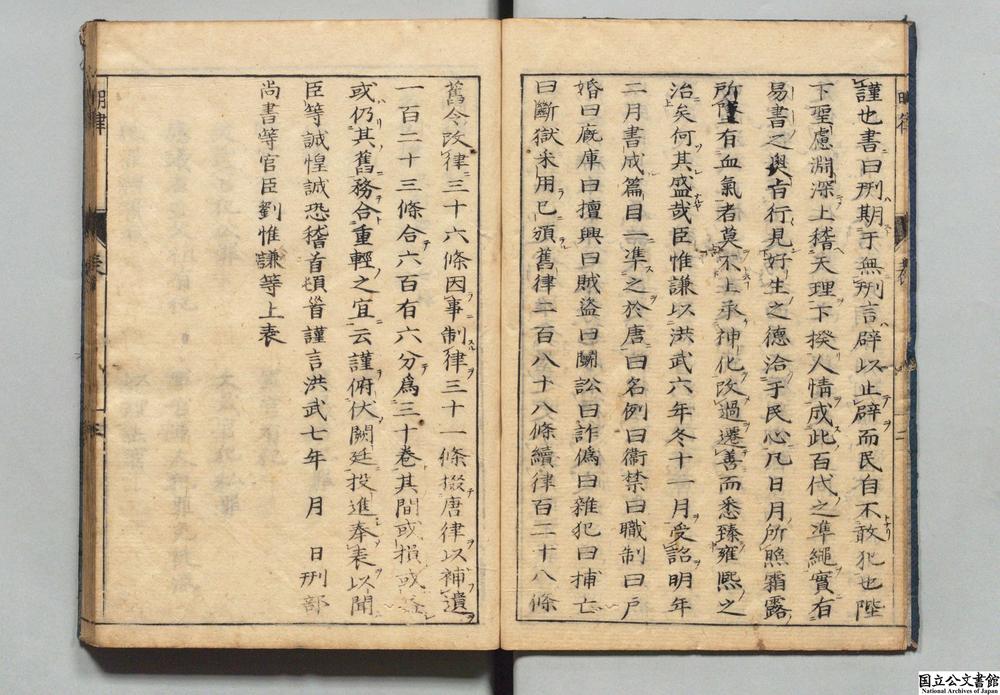 謹也書曰刑期于無刑言辟以止辟而民自不敢犯也陛
下聖慮淵深上稽天理下揆人情成此百代之準繩實有
易書之奥旨行見好生之德洽于民心凡日月所照霜露
所墜有血氣者莫不上承神化改過遷善而悉臻雍熙之
治矣何其盛哉臣惟謙以洪武六年冬十一月受詔明年
二月書成篇目一準之於唐曰名例曰衛禁曰職制曰戸
婚曰廐庫曰擅興曰賊盗曰鬪訟曰詐僞曰雜犯曰捕亡
曰斷獄采用已頒舊律二百八十八條續律百二十八條
舊令改律三十六條因事制律三十一條掇唐律以補遺
一百二十三條合六百有六分爲三十巻其間或損或益
或仍其舊務合重輕之宜云謹俯伏闕廷投進奉表以聞
臣等誠惶誠恐稽首頓首謹言洪武七年 月 日刑部
尚書等官臣劉惟謙等上表
明律 表
国立公文書館
National Archives of Japan